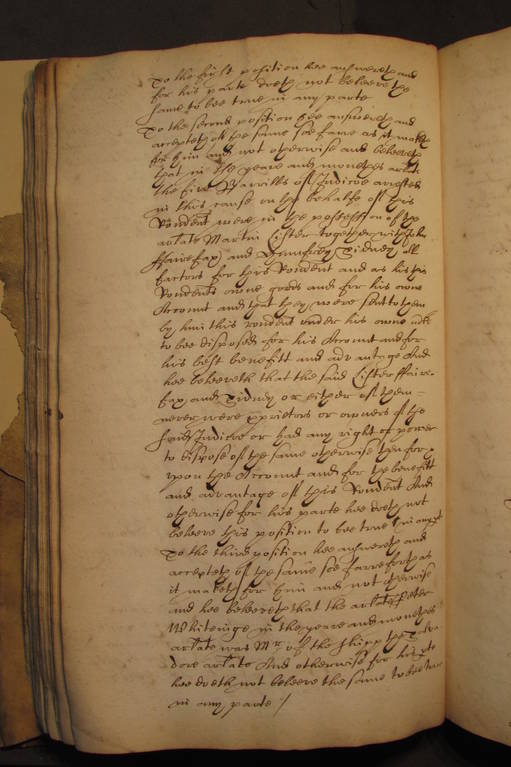 To the first position hee answereth and
for his parte doeth not beleeve the
same to bee true in any parte
To the second position hee answereth and
accepteth of the same soe farre as it maketh
for him and not otherwise and beleeveth
that in the yeare and moneths arlate
the five Barrills of Indicoe arrested
in this cause on the behalfe of this
Rondent were in the possession of the
arlate Martin Lister together with John
ffairefax and Humfrey Sidney all
factors for this Rondent and as his this
Rondents owne goods and for his owne
Account and that they were sent to them
by him this rondent under his owne
to bee disposed for his Account and for
his best benefitt and advantage And
hee beleeveth that the said Lister ffaire-
fax and Sidney or either of them
never were pprietors or owners of the
said Indicoe or had any right or power
to dispose of the same otherwise then for
upon the Account and for the benefitt
and advantage of this Rondent And
otherwise for his parte hee doeth not
beleeve this position to bee true in any pt
To the third position hee answereth and
accepteth of the same soe farre forth as
it maketh for him and not otherwise
and hee beleeveth that the arlate Peter
Whiteinge in the yeare and moneths
arlate was Mr of the shipp the
dore arlate And otherwise for his pte
hee doeth not beleeve the same to bee true
in any parte :/